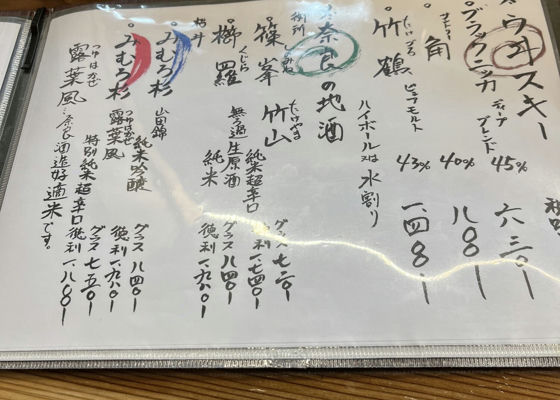 ウヰスキー
ブラックニッカ ディープブレンド 45% 六三〇ー
角 40% 八〇ー
竹鶴 ピュアモルト 43% 一四〇八ー
ハイボール又は水割り
奈良の地酒
篠峯 竹山 純米超辛口 グラス 七二〇ー
徳利 一、七四〇ー
櫛羅 無濾過生原酒 純米 グラス 八四〇ー
徳利 一、九八〇ー
みむろ杉 山田錦 純米吟醸 グラス 八四〇ー
徳利 一、九八〇ー
みむろ杉 露葉風 特別純米超辛口 グラス 七五〇ー
徳利 一、八〇八ー
露葉風…奈良酒造好適米です。